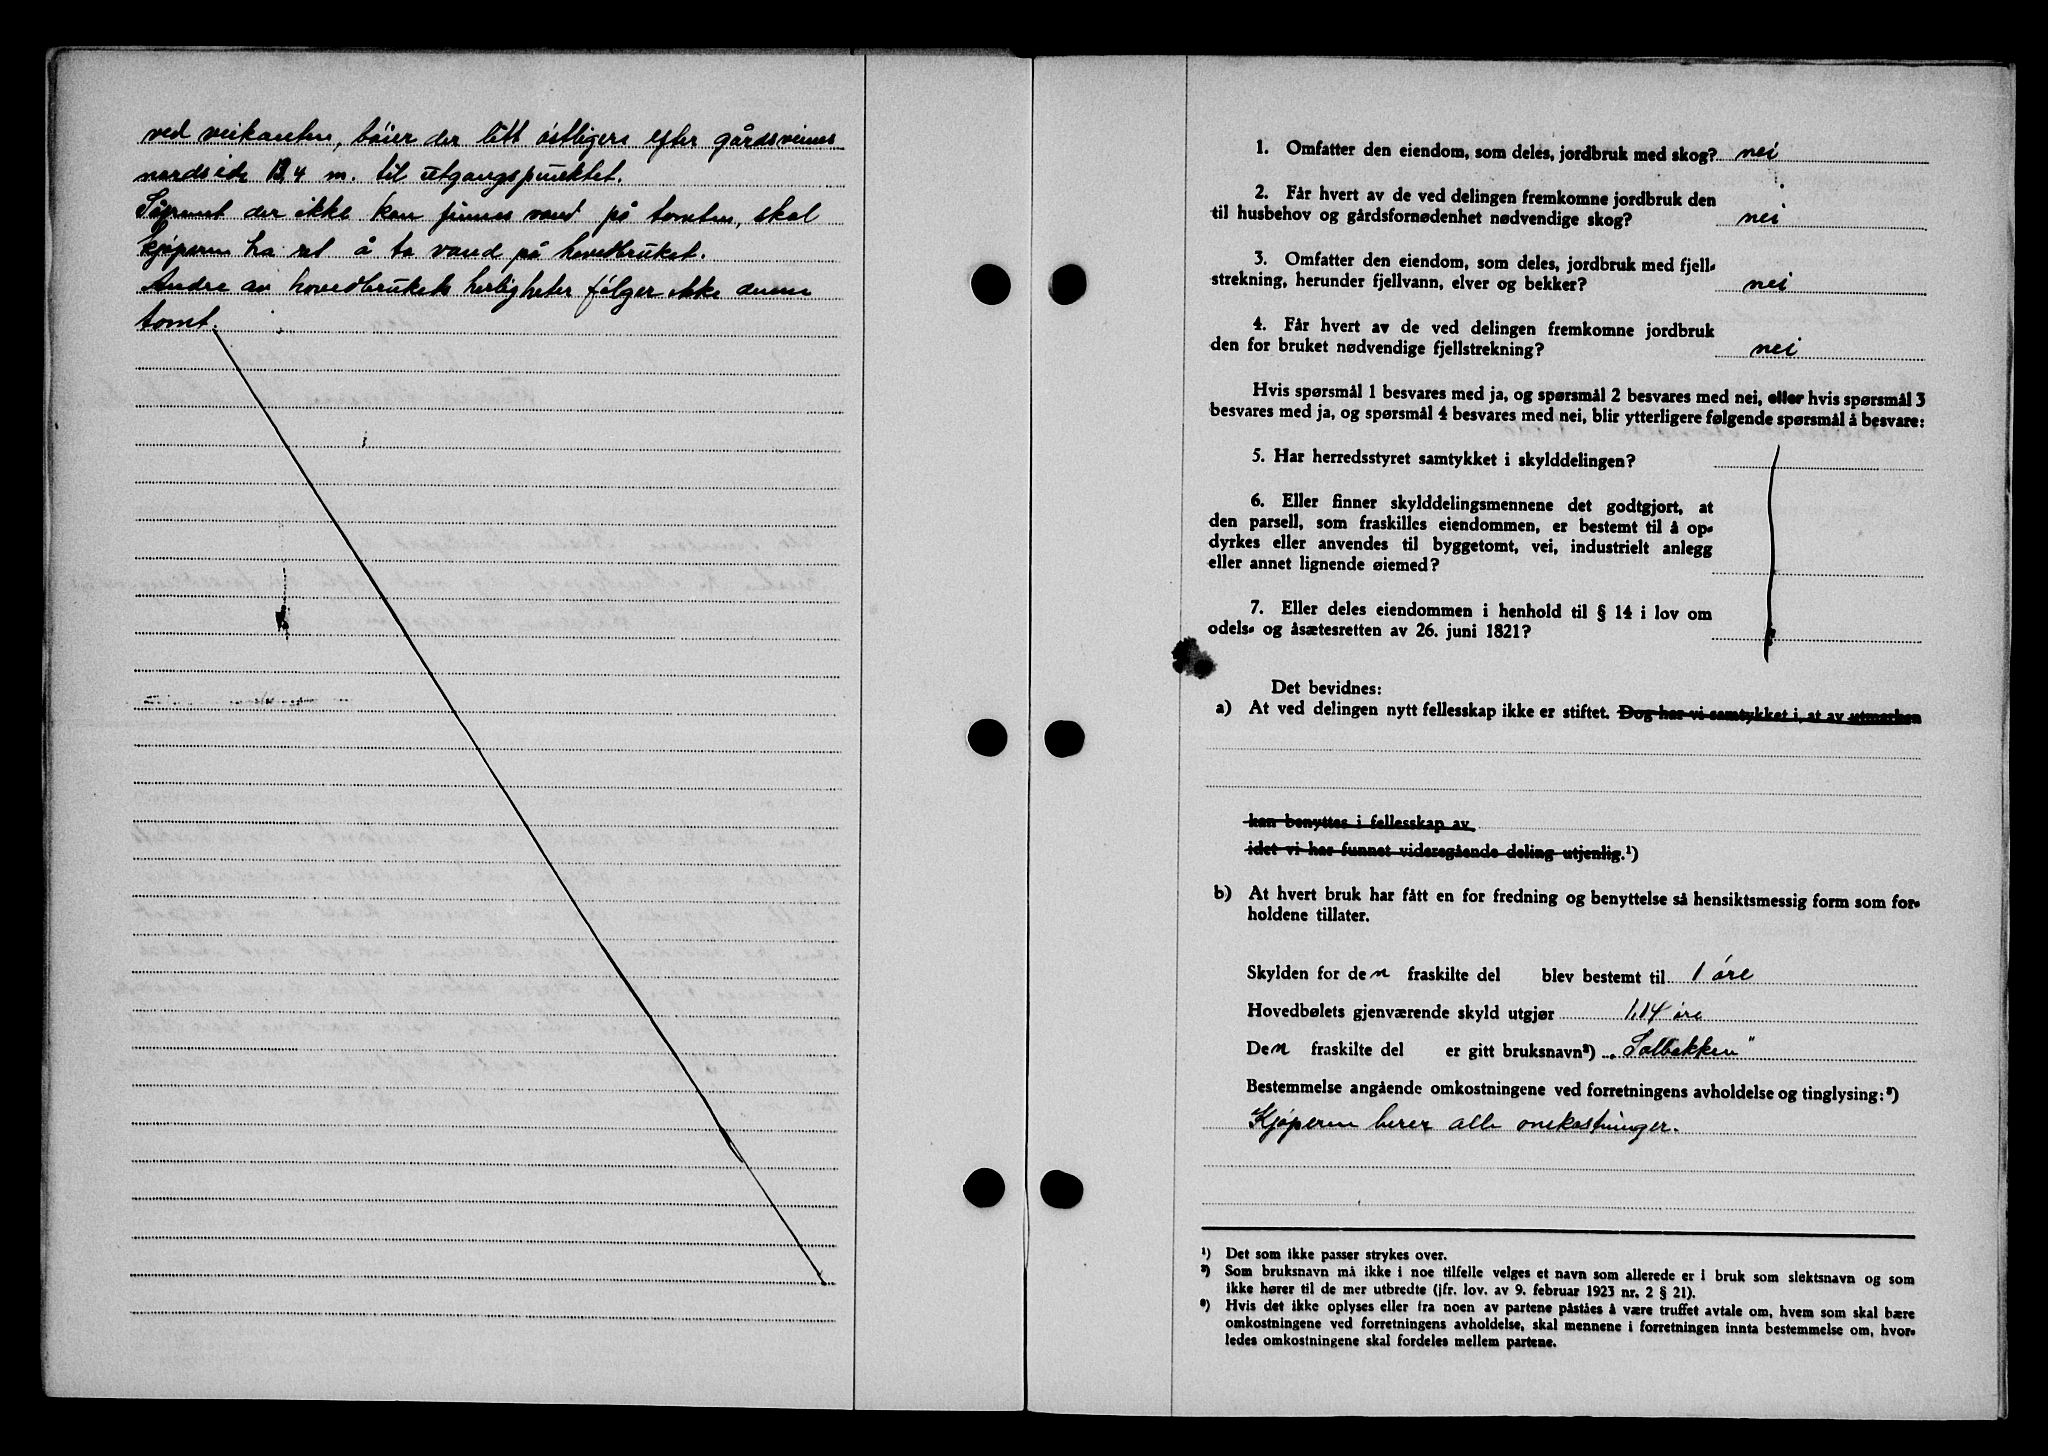 ved veikanten, bøier der litt østligere efter gårdsveiens
nordside 13,4 m. til utgangspunktet.
Såfremt der ikke kan finnes vand på tomten, skal
kjøperen ha ret å ta vand på hovedbruket.
Andre av hovedbrukets herligheter følger ikke denne
tomt.
1. Omfatter den eiendom, som deles, jordbruk med skog? nei
2. Får hvert av de ved delingen fremkomne jordbruk den
til husbehov og gårdsfornødenhet nødvendige skog? nei
3. Omfatter den eiendom, som deles, jordbruk med fjell-
strekning, herunder fjellvann, elver og bekker? nei
4. Får hvert av de ved delingen fremkomne jordbruk
den for bruket nødvendige fjellstrekning? nei
Hvis spørsmål 1 besvares med ja, og spørsmål 2 besvares med nei, eller hvis spørsmål 3
besvares med ja, og spørsmål 4 besvares med nei, blir ytterligere følgende spørsmål å besvare:
5. Har herredsstyret samtykket i skylddelingen?
6. Eller finner skylddelingsmennene det godtgjort, at
den parsell, som fraskilles eiendommen, er bestemt til å op-
dyrkes eller anvendes til byggetomt, vei, industrielt anlegg
eller annet lignende øiemed?
7. Eller deles eiendommen i henhold til § 14 i lov om
odels- og åsætesretten av 26. juni 1821?
Det bevidnes:
a) At ved delingen nytt fellesskap ikke er stiftet. Dog har vi samtykket i, at av utmarken
kan benyttes i fellesskap av
idet vi har funnet videregående deling utjenlig.¹)
b) At hvert bruk har fått en for fredning og benyttelse så hensiktsmessig form som for-
holdene tillater.
Skylden for den fraskilte del blev bestemt til 1 øre
Hovedbølets gjenværende skyld utgjør 1,14 øre
Den fraskilte del er gitt bruksnavn²) „Solbakken"
Bestemmelse angående omkostningene ved forretningens avholdelse og tinglysing:³)
Kjøperen berer alle omkostninger.
¹) Det som ikke passer strykes over.
²) Som bruksnavn må ikke i noe tilfelle velges et navn som allerede er i bruk som slektsnavn og som
ikke hører til de mer utbredte (jfr. lov. av 9. februar 1923 nr. 2 § 21).
³) Hvis det ikke oplyses eller fra noen av partene påståes å være truffet avtale om, hvem som skal bære
omkostningene ved forretningens avholdelse, skal mennene i forretningen innta bestemmelse om, hvor-
ledes omkostningene skal fordeles mellem partene.